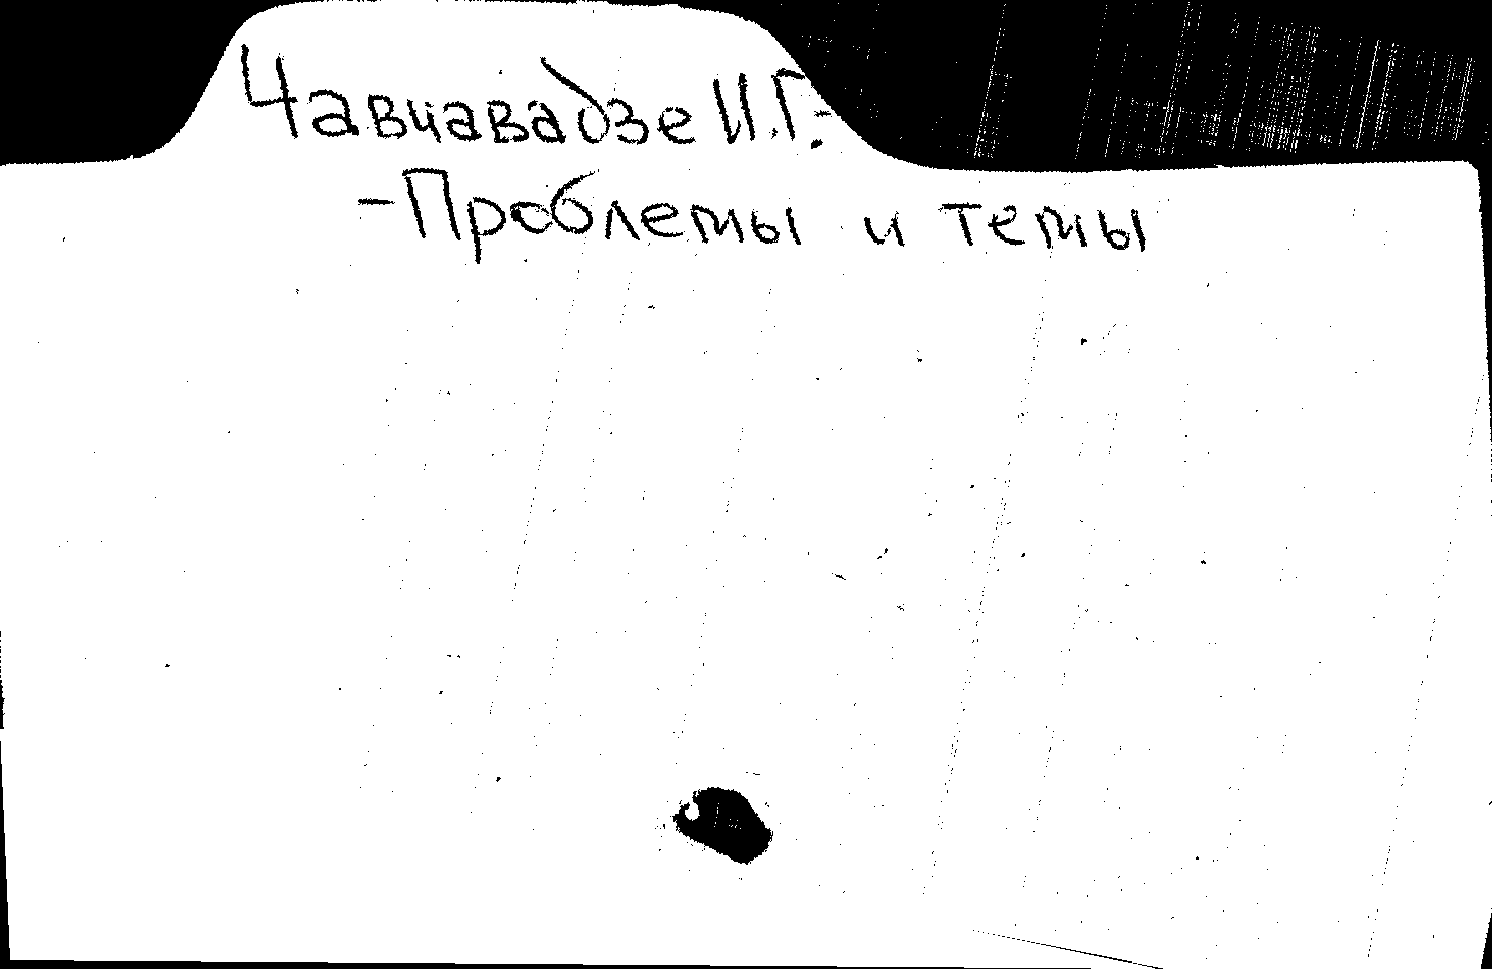 Чавчавадзе И.Г.-
-Проблемы и темы